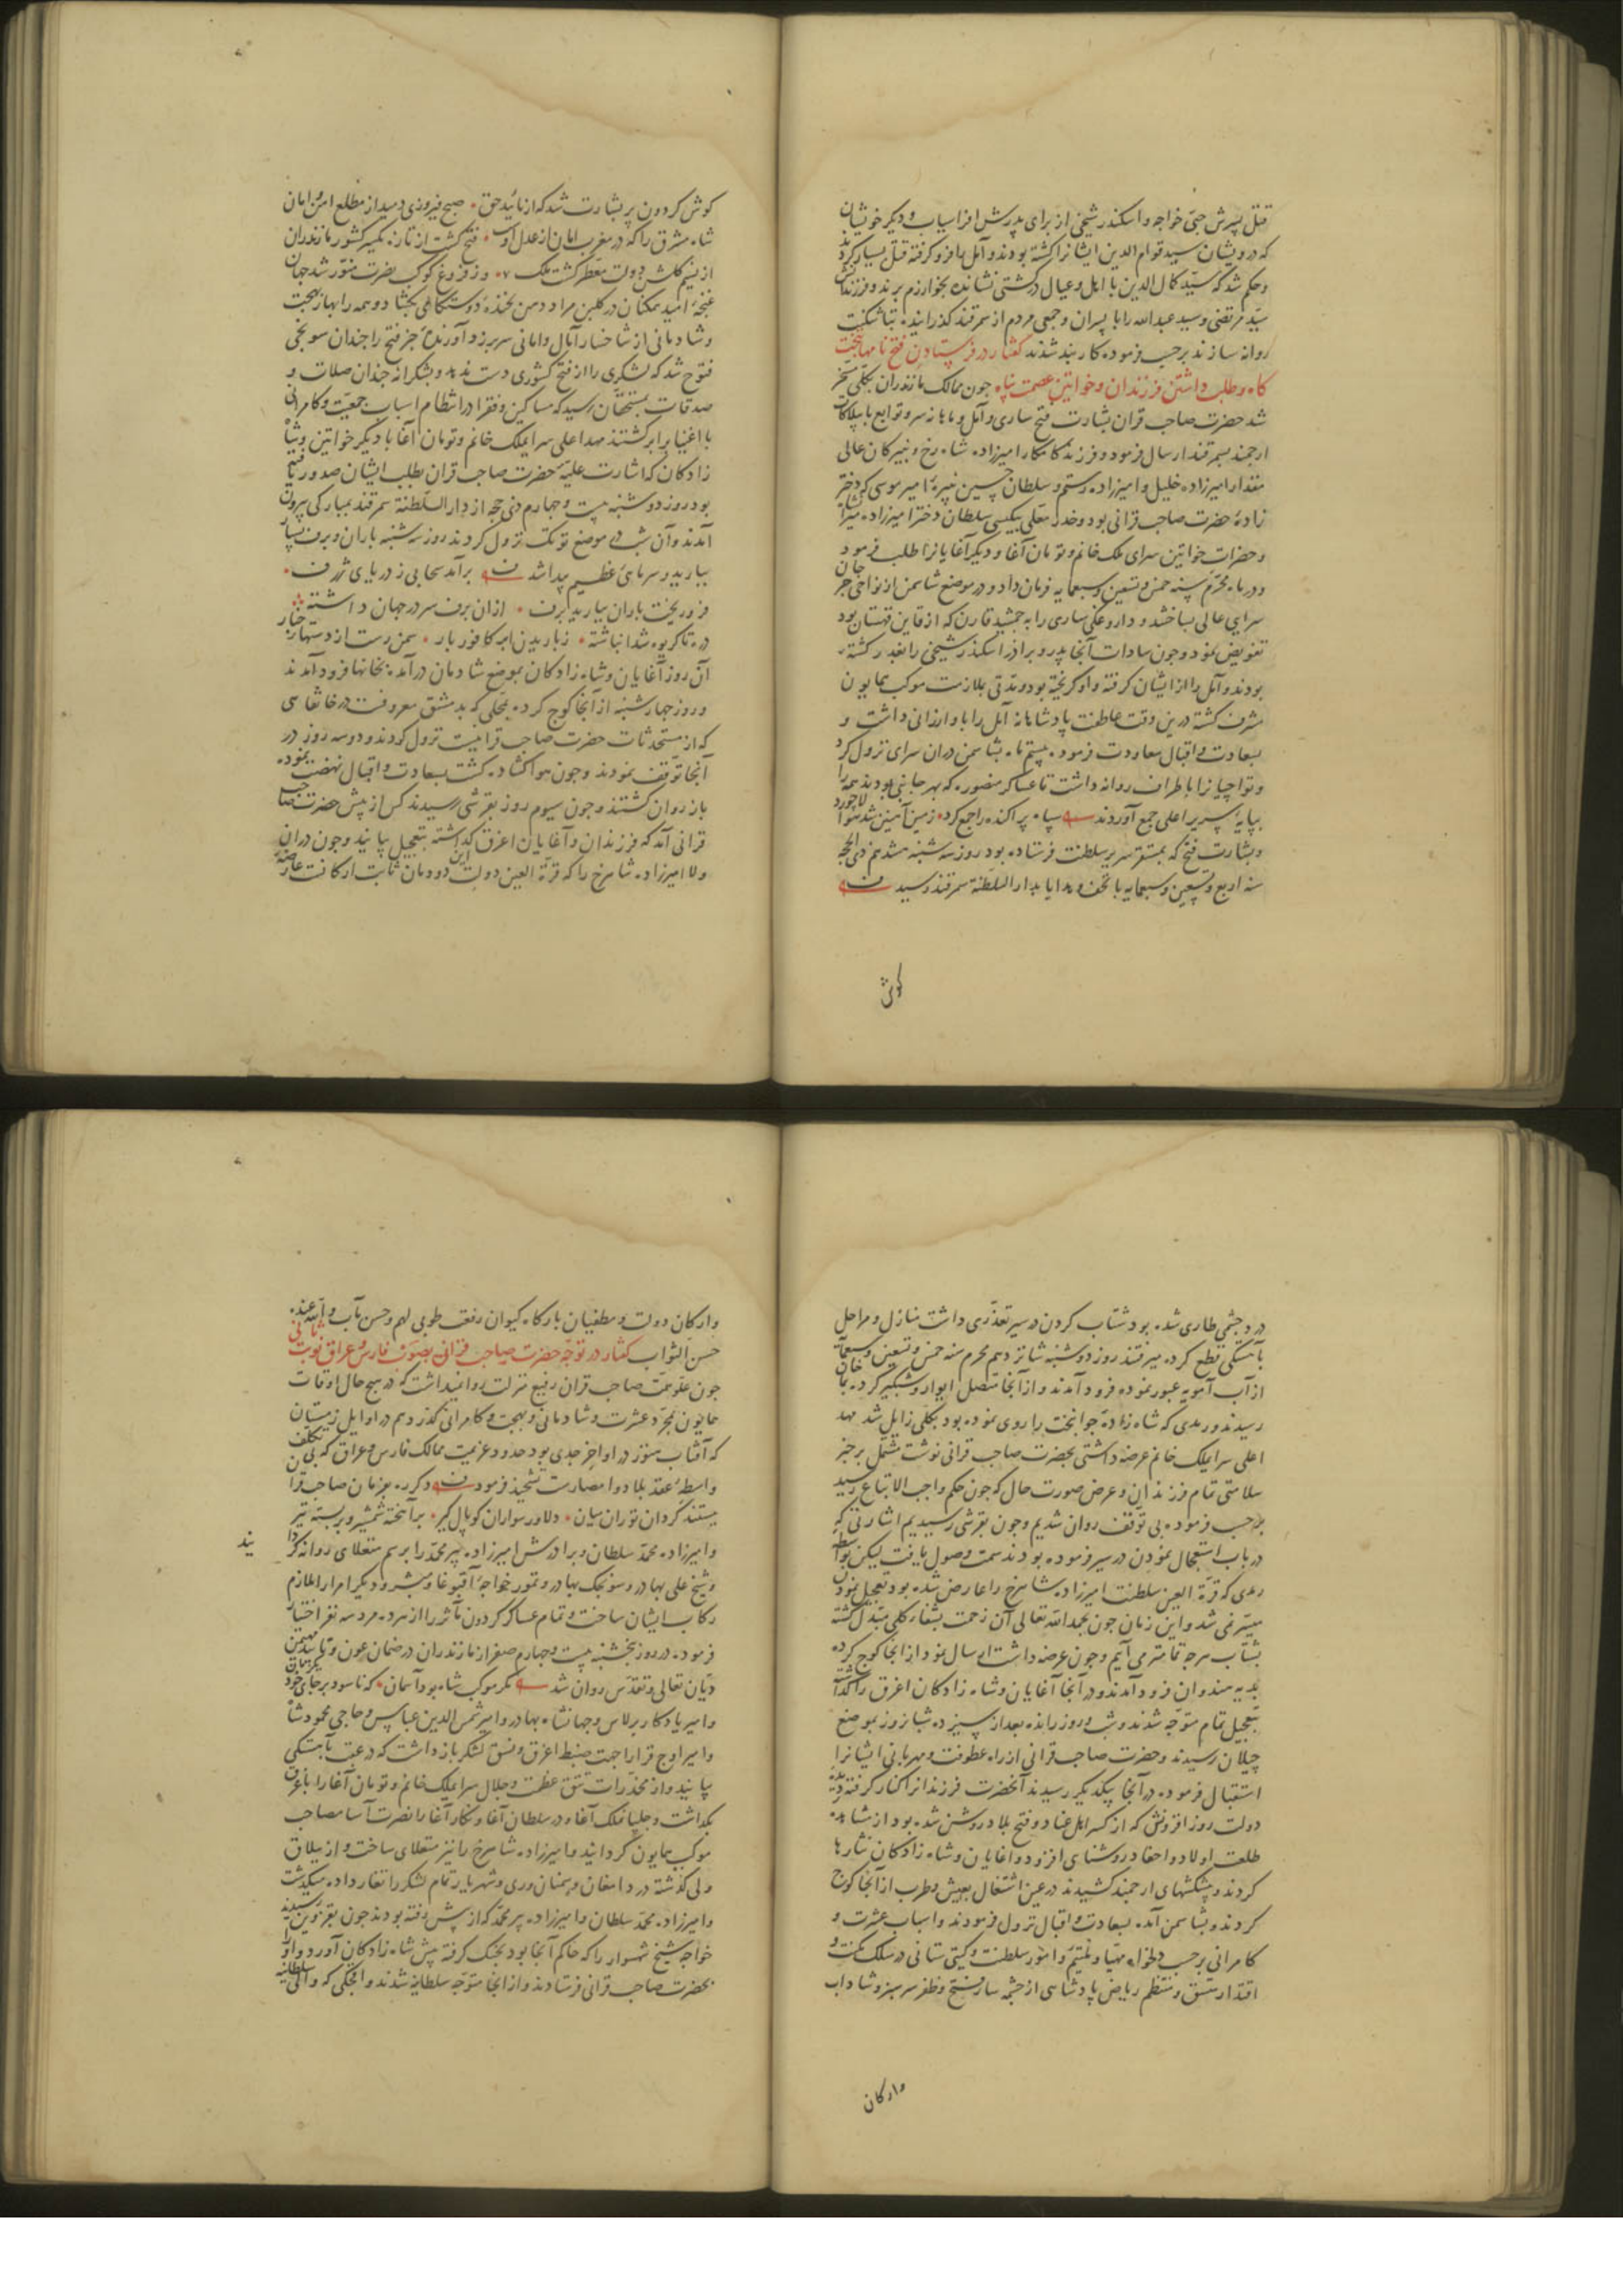 قتل پسرش جبی خواجه و اسکندر شیخی از برای پدرش افراسیاب و دیکر خویشان
که درویشان سید قوام الدین ایشانرا کشته بودند و آمل را فرو کرفته قتل بسیار کردند
و حکم شد که سید کمال الدین با اهل و عیال در کشتی نشانده بخوارزم برند و فرزندانش
سید مرتضی و سید عبدالله را با پسران و جمعی مردم از سمرقند کذرانیده بتاشکنت
روانه سازند برحسب فرموده کاربند شدند کفتار در فرستادن فتح نامها بتختـ
کاه و طلب داشتن فرزندان و خواتین عصمت پناه جون ممالک مازندران بکلی مسخر
شد حضرت صاحب قران بشارت فتح ساری و آمل و ماهانه سر و توابع با بیلاکات
ارجمند بسمرقند ارسال فرمود و فرزند کامکار امیرزاده شاه رخ و نبیرکان عالی
مقدار امیرزاده خلیل و امیرزاده رستم و سلطان حسین نبیره امیر موسی که دختر
زاده حضرت صاحب قرانی بود و خدر معلی بیکسی سلطان دختر امیرزاده میرانشاه
و حضرات خواتین سرای ملک خانم و تومان آغا و دیکر آغایانرا طلب فرمود
و در ماه محرم سنه خمس و تسعین و سبعمایه فرمان داد و در موضع شاسمن از نواحی جرجان
سرایی عالی بساختند و داروغکی ساری را به جمشید قارن که از قاین قهستان بود
تفویض نمود و جون سادات آنجا پدر و برادر اسکندر شیخی را بغدر کشته
بودند و آمل را از ایشان کرفته و او کریخته بود و مدتی بملازمت موکب همایون
مشرف کشته درین وقت عاطفت پادشاهانه آمل را باو ارزانی داشت و
بسعادت و اقبال معاودت فرمود بیستم ماه بشاسمن دران سرای نزول کرد
و تواجیانرا باطراف روانه داشت تا عساکر منصوره که بهر جانبی بودند همه را
بپایه سریر اعلی جمع آوردند سپاه پراکنده را جمع کرد زمین آهنین شد هوا لاجورد
و بشارت فتح که بمستقر سریر سلطنت فرستاده بود روز سه شنبه هشدهم ذی الحجه
سنه اربع و تسعین و سبعمایه با تحف و هدایا بدارالسلطنة سمرقند رسید
کوش
کوش کردون پر بشارت شد که از تائید حق صبح فیروزی دمید از مطلع امن و امان
شاه مشرق را که در مغرب امان از عدل اوست فتح کشت از تازه یکسر کشور مازندران
از نسیم کلشن دولت معطر کشت ملک وز فروغ کوکب نصرت منور شد جهان
غنجه امید همکنان در کلبن مراد دهن بخنده دوستکامی بکشاد و همه را بهار بهجت
و شادمانی از شاخسار آمال و امانی سر برزد و آورنده خبر فتح را جندان سوبخی
فتوح شد که لشکری را از فتح کشوری دست ندهد و بشکرانه جندان صلات و
صدقات بمستحقان رسید که مساکین و فقرا در انتظام اسباب جمعیت و کامرانی
با اغنیا برابر کشتند مهد اعلی سرایملک خانم و تومان آغا با دیکر خواتین و شاه
زادکان که اشارت علیه حضرت صاحب قران بطلب ایشان صدور یافته
بود روز دوشنبه بیست و جهارم ذی حجه از دار السلطنة سمرقند بمبارکی بیرون
آمدند و آن شب در موضع توبک نزول کردند روز سه شنبه باران و برف بسیار
ببارید و سرمائی عظیم پیدا شد برآمد سحابی ز دریای ژرف
فرو ریخت باران ببارید برف ازان برف سر در جهان داشته
دره تا کریوه شد انباشته ز باریدن ابر کافور بار سمن رست از دستهای چنار
آن روز آغایان و شاه زادکان بموضع شادمان درآمده بخانها فرود آمدند
و روز جهارشنبه از آنجا کوج کرده بمحلی که بدمشق معروفست در خانقاهی
که از مستحدثات حضرت صاحب قرانیست نزول کردند و دو سه روز در
آنجا توقف نمودند و جون هوا کشاده کشت بسعادت و اقبال نهضت نموده
باز روان کشتند و جون سیوم روز بقرشی رسیدند کس از پیش حضرت صاحب
قرانی آمد که فرزندان و آغایان اغرق کذاشته بتعجیل بیایند و جون دران
ولا امیرزاده شاهرخ را که قرة العین دولت این دودمان ثابت ارکانست عارضه
درد جشمی طاری شده بود شتاب کردن در سیر تعذری داشت منازل و مراحل
بآهستکی قطع کرده میرفتند روز دوشنبه شانزدهم محرم سنه خمس و تسعین و سبعمایه
از آب آمویه عبور نموده فرود آمدند و از آنجا متصل ایوار و شبکیر کرده بماخان
رسیدند و رمدی که شاه زاده جوانبخت را روی نموده بود بکلی زایل شد مهد
اعلی سرایملک خانم عرضه داشتی بحضرت صاحب قرانی نوشت مشتمل بر خبر
سلامتی تمام فرزندان و عرض صورت حال که جون حکم واجب الاتباع رسید
برحسب فرموده بی توقف روان شدیم و جون بقرشی رسیدیم اشارتی که
در باب استعجال نمودن در سیر فرموده بودند سمت وصول یافت لیکن بواسطه
رمدی که قرة العین سلطنت امیرزاده شاهرخ را عارض شده بود تعجیل نمودن
میسر نمی شد و این زمان جون بحمدالله تعالی آن زحمت بشفاء کلی مبدل کشته
بشتاب هرجه تمامتر می آییم و جون عرضه داشت ارسال نمود از انجا کوج کرده
بدیه هندوان فرود آمدند و در آنجا آغایان و شاه زادکان اغرق را کذاشته
بتعجیل تمام متوجه شدند و شب و روز رانده بعد از سیزده شبانروز بموضع
جیلان رسیدند و حضرت صاحب قرانی از راه عطوفت و مهربانی ایشانرا
استقبال فرموده در آنجا بیکدیکر رسیدند آنحضرت فرزندانرا کنار کرفته دیده
دولت روز افزونش که از کسر اهل عناد و فتح بلاد روشن شده بود از مشاهده
طلعت اولاد و احفاد روشنایی افزود و آغایان و شاه زادکان نثارها
کردند و پیشکشهای ارجمند کشیدند در عین اشتغال بعیش و طرب از آنجا کوج
کردند و بشاسمن آمده بسعادت و اقبال نزول فرمودند و اسباب عشرت و
کامرانی برحسب دلخواه مهیا و ملتیم و امور سلطنت و کیتی ستانی در سلک مکنت و
اقتدار متسق و منتظم ریاض پادشاهی از جشمه سار فتح و ظفر سرسبز و شاداب
وارکان
وارکان دولت و مطیفان بارکاه کیوان رفعت طوبی لهم و حسن مآب والله عنده
حسن الثواب کفتار در توجه حضرت صاحب قرانی بصوب فارس و عراق نوبت ثانی
جون علو همت صاحب قران رفیع منزلت روا نمیداشت که در هیج حال اوقات
همایون بمجرد عشرت و شادمانی و بهجت و کامرانی کذرد هم در اوایل زمستان
که آفتاب هنوز در اواخر جدی بود حدود عزیمت ممالک فارس و عراق که بی تکلف
واسطه عقد بلاد و امصارست تشحیذ فرمود دکرره بفرمان صاحب قران
ببستند کردان توران میان دلاور سواران کوپال کیر برآهخته شمشیر و بربسته تیر
و امیرزاده محمد سلطان و برادرش امیرزاده پیر محمد را برسم منغلای روانه کردا
یند
و شیخ علی بهادر و سونجک بهادر و تمور خواجه آقبوغا و مبشر و دیکر امرا را ملازم
رکاب ایشان ساخت و تمام عساکر کردون مآثر را از هر ده مرد سه نفر اختیار
فرموده در روز پنجشنبه بیست و جهارم صفر از مازندران در ضمان عون و تائید مهیمن
دیان تعالی و تقدس روان شد مکر موکب شاه بود آسمان که ناسود بر جای خود یکزمان
و امیر یادکار برلاس و جهانشاه بهادر و امیر شمس الدین عباس و حاجی محمود شاه
و امیر اوج قرا را جهت ضبط اغرق و نسق لشکر بازداشت که در عقب بآهستکی
بیایند و از مخدرات تتق عظمت و جلال سرایملک خانم و تومان آغا را باغرق
بکذاشت و جلپان ملک آغا و در سلطان آغا و نکار آغا را نصرت آسا مصاحب
موکب همایون کردانید و امیرزاده شاهرخ را نیز منغلای ساخت و از ییلاق
ولی کذشته در دامغان و سمنان و ری و شهریار تمام لشکر را تغار داده میکذشت
و امیرزاده محمد سلطان و امیرزاده پیر محمد که از پیش رفته بودند جون بقزوین رسیدند
خواجه شیخ شهسوار را که حاکم آنجا بود بجنک کرفته پیش شاه زادکان آورد و او را
بحضرت صاحب قرانی فرستادند و از انجا متوجه سلطانیه شدند و اخجکی که والی سلطانیه